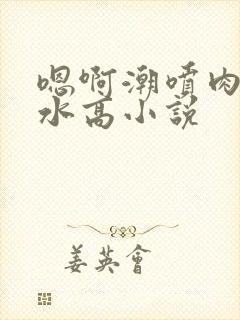 嗯啊潮喷肉
水高小説
姜英會